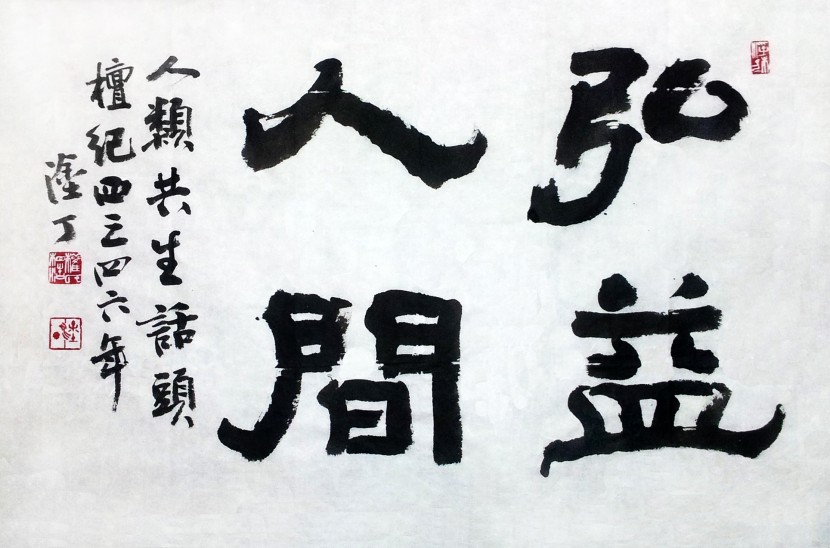 弘益
人間
人類共生話頭
檀紀四三四六年
丁